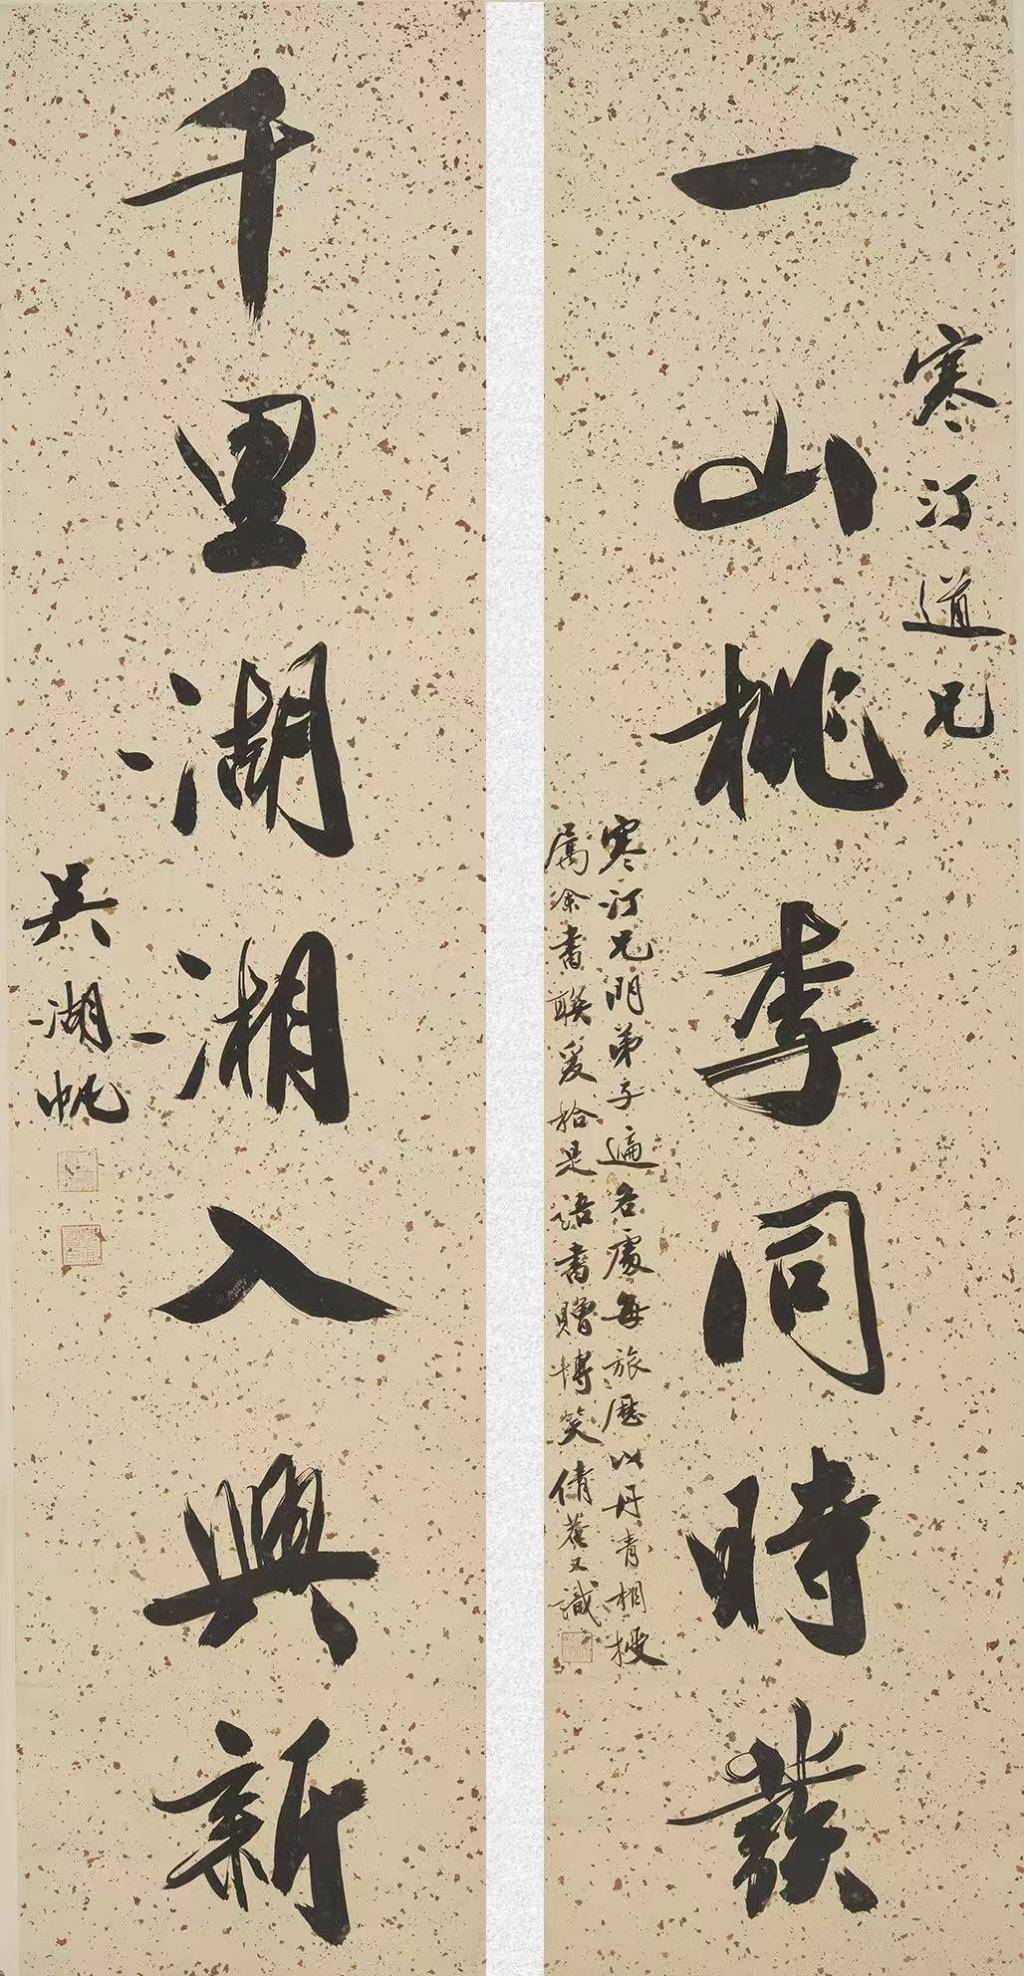 寒汀道兄
一山桃李同時發
寒汀兄門弟子遍各處每旅歷以丹青相授
屬余書聯爰拾是語書贈博笑倩菴又識
千里湖湘入興新
吳湖帆